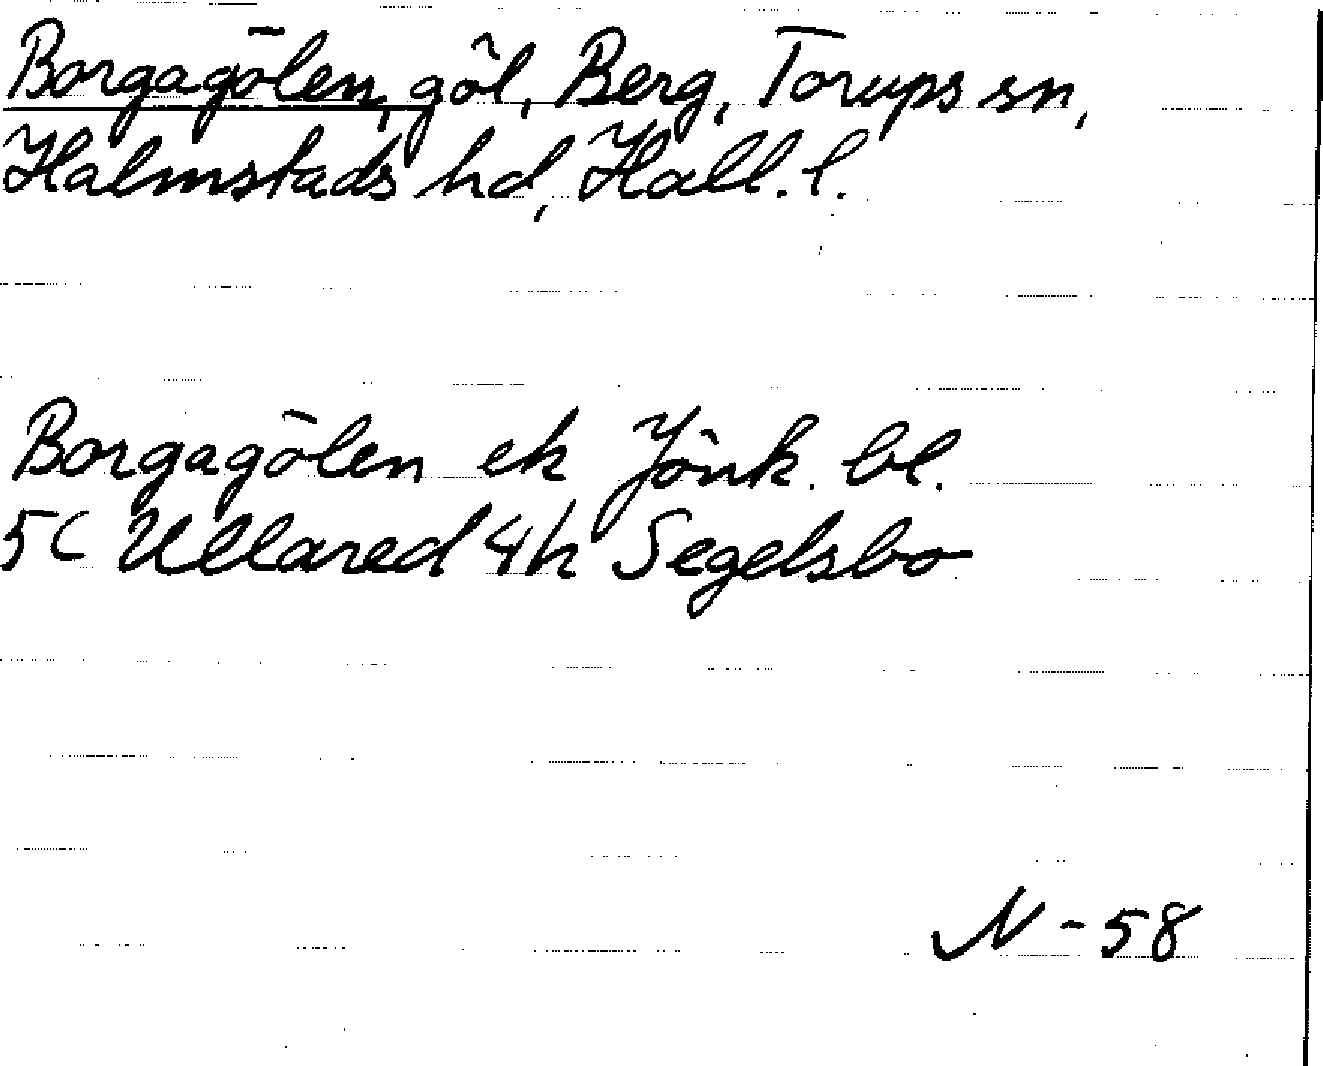 Borgagölen, göl, Berg, Torups sn,
Halmstads hd, Hall. l.
Borgagölen ek Jönk. bl.
5C Ullared 4h Segelsbo
N - 58